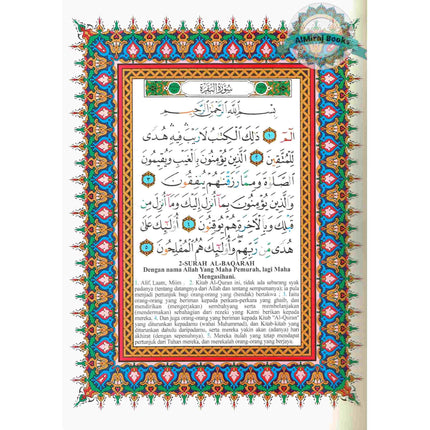 AlMiraj Books
سُورَةُ البَقَرَةِ
بِسْمِ اللَّهِ الرَّحْمَٰنِ الرَّحِيمِ
الٓمٓ ١ ذَٰلِكَ الْكِتَٰبُ لَا رَيْبَ فِيهِ هُدًى
لِّلْمُتَّقِينَ ٢ الَّذِينَ يُؤْمِنُونَ بِالْغَيْبِ وَيُقِيمُونَ
الصَّلَوٰةَ وَمِمَّا رَزَقْنَٰهُمْ يُنفِقُونَ ٣
وَالَّذِينَ يُؤْمِنُونَ بِمَا أُنزِلَ إِلَيْكَ وَمَا أُنزِلَ مِن
قَبْلِكَ وَبِالْآخِرَةِ هُمْ يُوقِنُونَ ٤ أُولَٰئِكَ عَلَىٰ
هُدًى مِّن رَّبِّهِمْ وَأُولَٰئِكَ هُمُ الْمُفْلِحُونَ ٥
2-SURAH AL-BAQARAH
Dengan nama Allah Yang Maha Pemurah, lagi Maha
Mengasihani.
1. Alif, Laam, Miim . 2. Kitab Al-Quran ini, tidak ada sebarang syak
padanya (tentang datangnya dari Allah dan tentang sempurnanya); ia pula
menjadi petunjuk bagi orang-orang yang (hendak) bertakwa ; 3. Iaitu
orang-orang yang beriman kepada perkara-perkara yang ghaib, dan
mendirikan (mengerjakan) sembahyang serta membelanjakan
(mendermakan) sebahagian dari rezeki yang Kami berikan kepada
mereka. 4. Dan juga orang-orang yang beriman kepada Kitab "Al-Quran"
yang diturunkan kepadamu (wahai Muhammad), dan Kitab-kitab yang
diturunkan dahulu daripadamu, serta mereka yakin akan (adanya) hari
akhirat (dengan sepenuhnya). 5. Mereka itulah yang tetap mendapat
petunjuk dari Tuhan mereka, dan merekalah orang-orang yang berjaya.